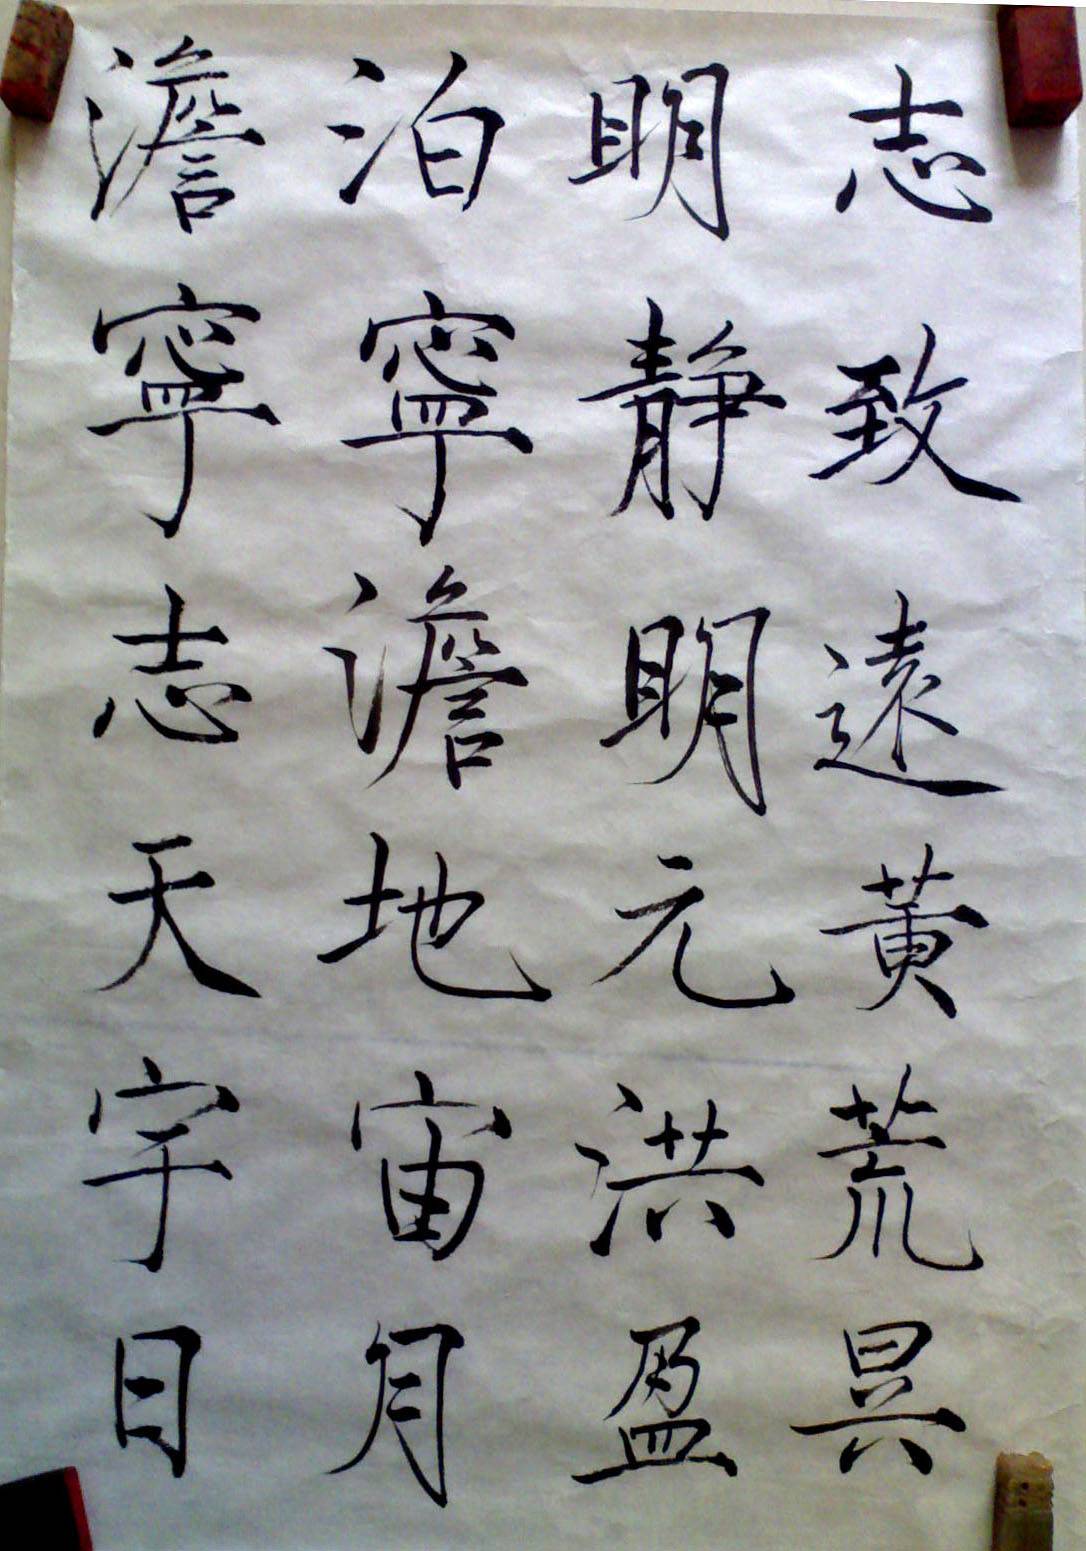 澹泊明志
寧寧靜致
志澹明遠
天地元黃
宇宙洪荒
日月盈昃